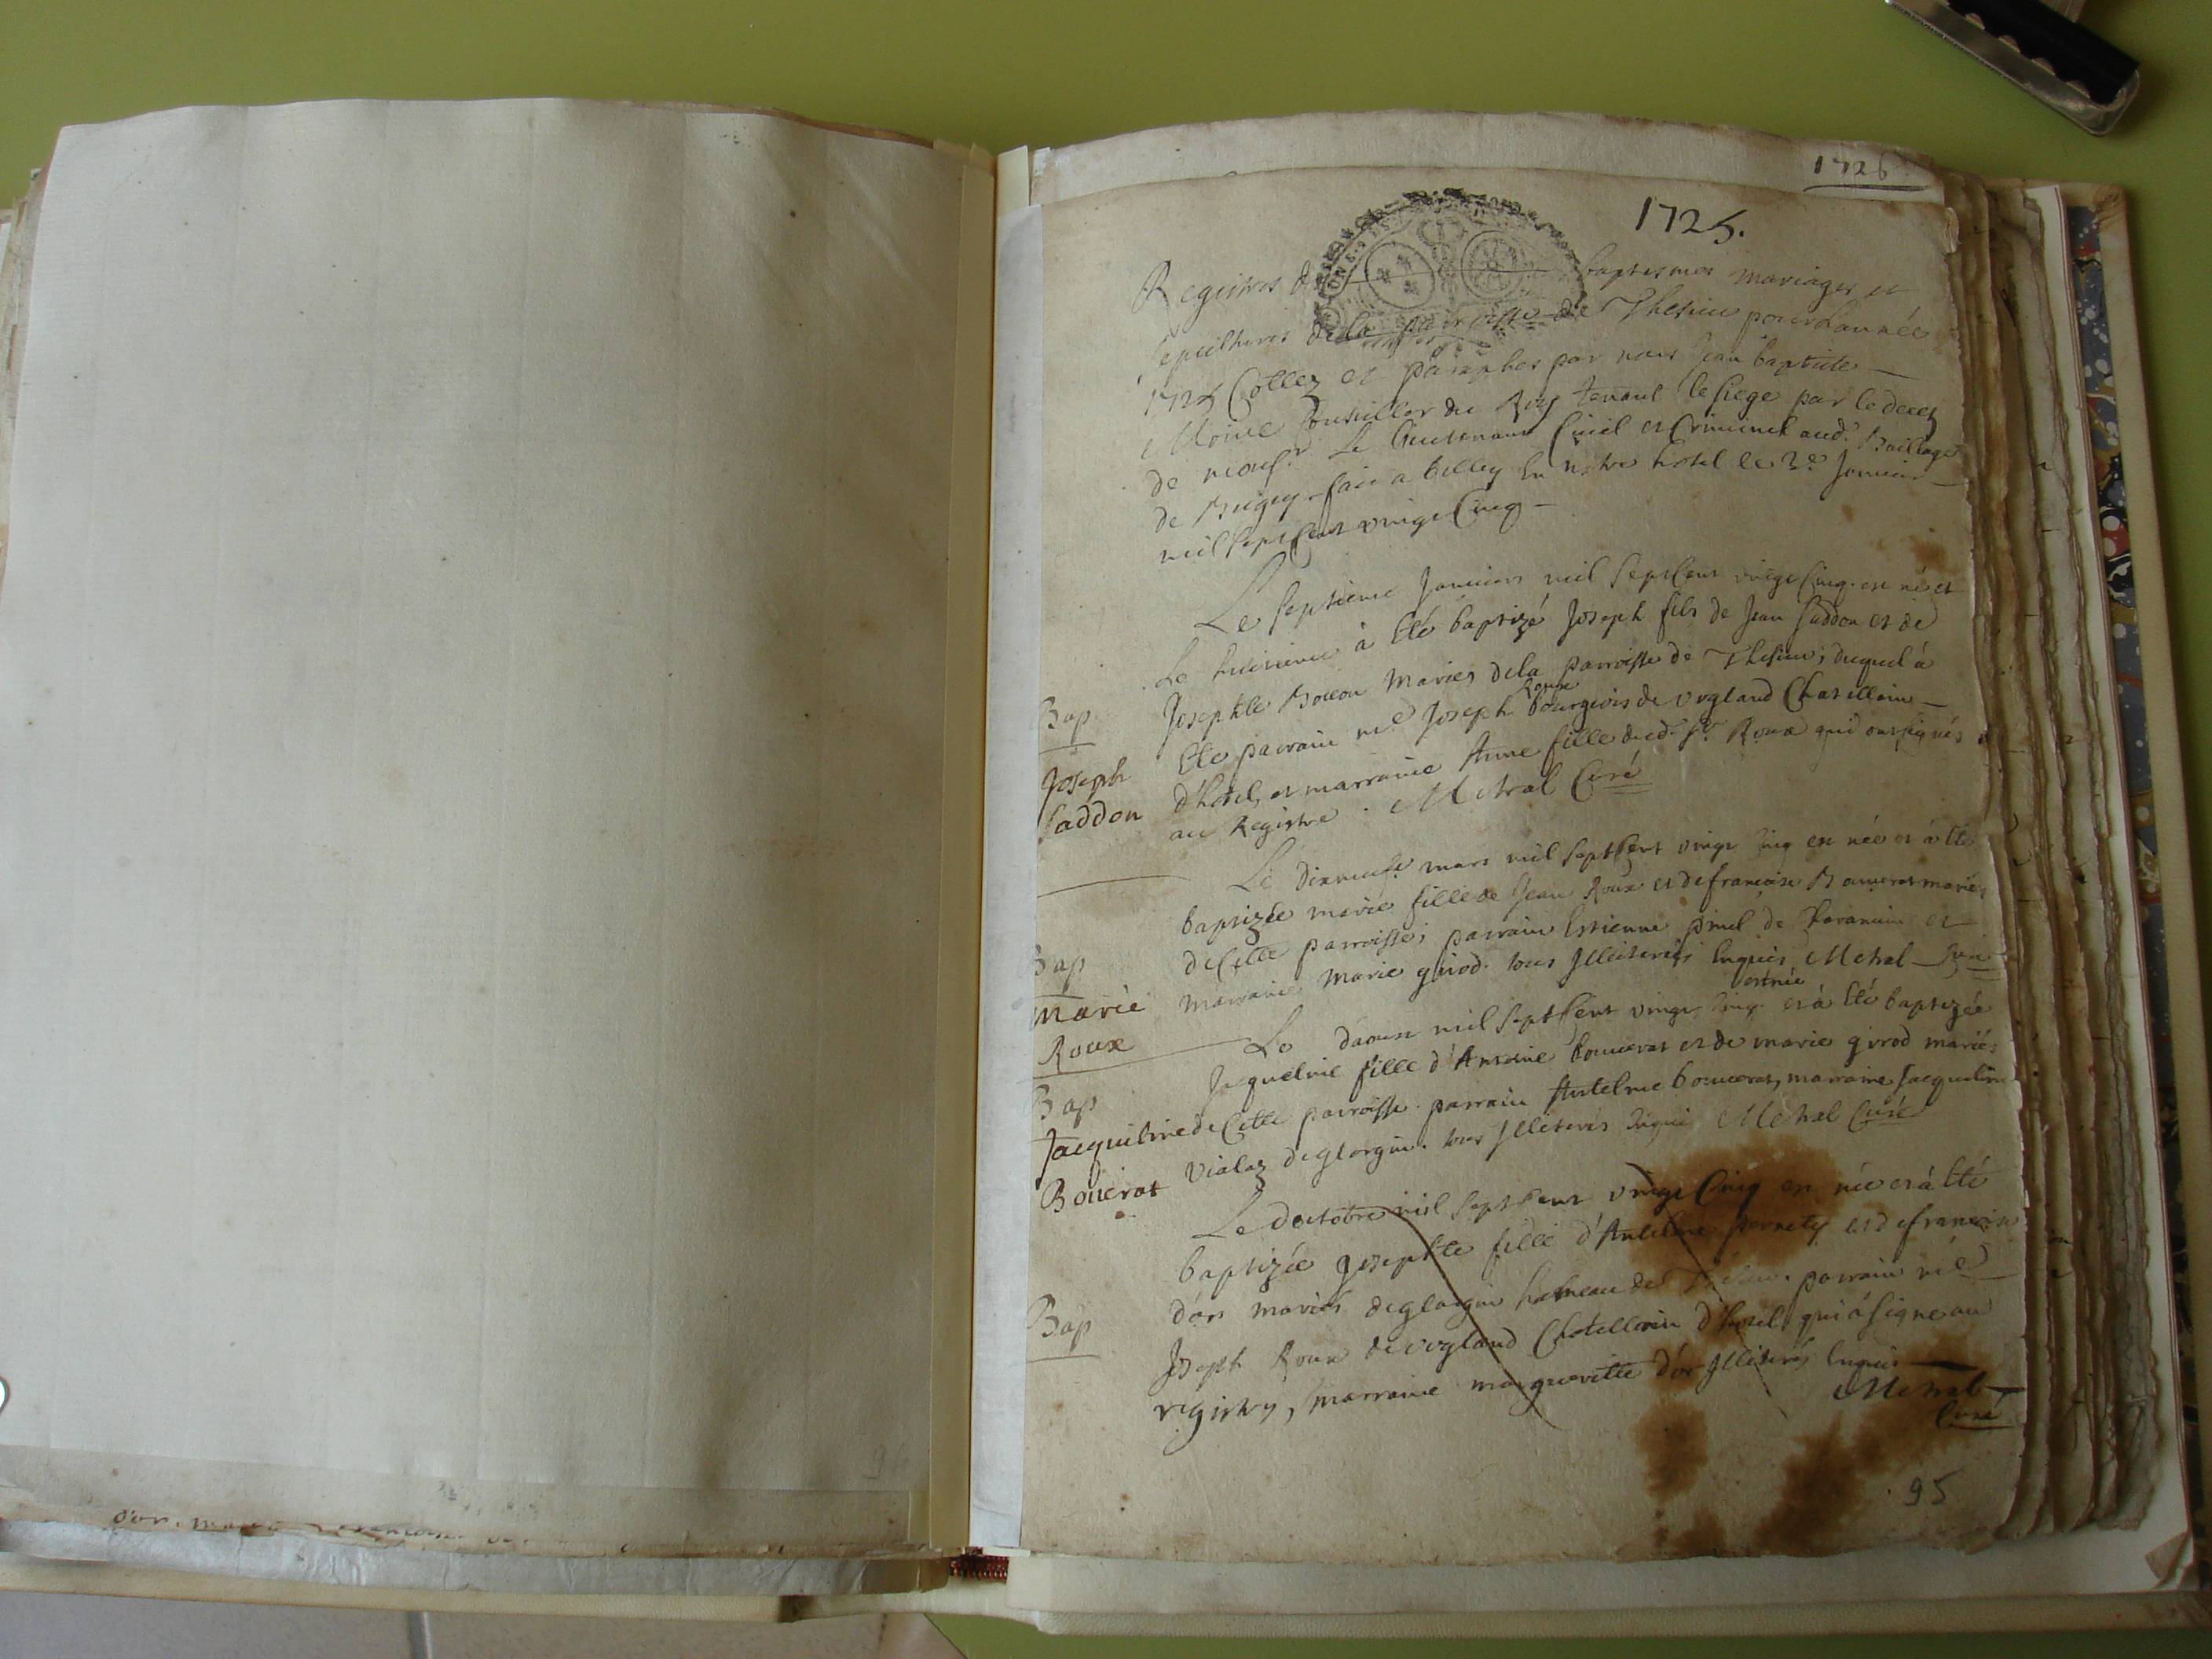 1726
1725.
Registres de baptismes mariages et
sepultures de la parroisse de Thesieu pour Lannée
1725 Cottez et paraphes par nous Jean baptiste
Conseiller du Roy tenant le siege par le decez
de Lieutenant Civil et Criminel aud. Baillage
de Bugey. fait a belley En notre hotel le 3e Janvier
mil sept Cent vingt Cinq
Le septieme Janvier mil sept Cent vingt Cinq. est né et
Le huitieme à Eté baptizé Joseph fils de Jean Saddon et de
Josephte Mariés dela parroisse de Thesieu; duquel à
Eté parrain me Joseph Roux bourgeois de vogland Chatellain
d'hotel, et marraine Anne fille dud. Sr. Roux qui ont signés
au Registre. Metral Curé
Bap
Joseph
Saddon
Le dixneufe mars mil sept Cent vingt Cinq est née et à Eté
baptizée marie fille de Jean Roux et de francoise mariés
de Cette parroisse; parrain Estienne pinel de et
marraine Marie girod. tous Illiterés Enquis Metral Curé
Bap
Marie
Roux
Le daoust mil sept Cent vingt Cinq. est née et à Eté baptizée
Jaqueline fille d'Antoine bouverat et de marie girod mariés
de Cette parroisse. parrain Antelme bouverat, marraine Jacqueline
vialaz deglorgin. tous Illiterés Enquis Metral Curé
Bap
Jacqueline
Bouerat
Le doctobre mil sept Cent vingt Cinq est née et à Eté
baptizée Josephte fille d'Antelme pernety et de francoise
d'or mariés deglorgin hameau de Thesieu. parrain me
Joseph Roux de vogland Chatellain d'hotel, qui à signe au
registre, marraine margueritte d'or Illiterés Enquis
Metral
Curé
Bap
95